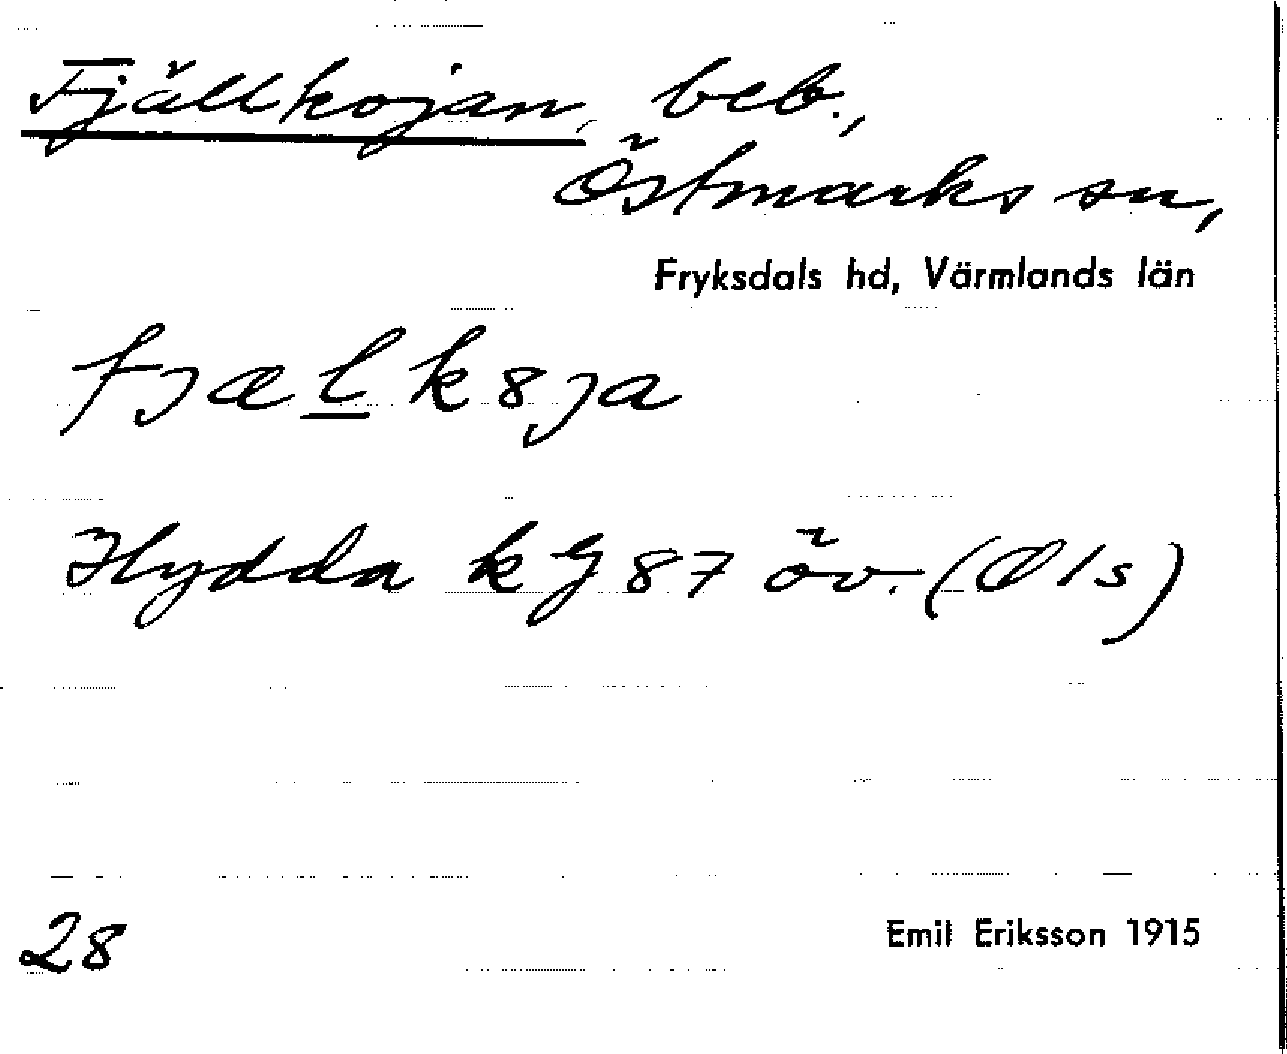 Fjällkojan, beb.,
Östmarks sn,
Fryksdals hd, Värmlands län
fjælk8ja
Hydda
28
Emil Eriksson 1915